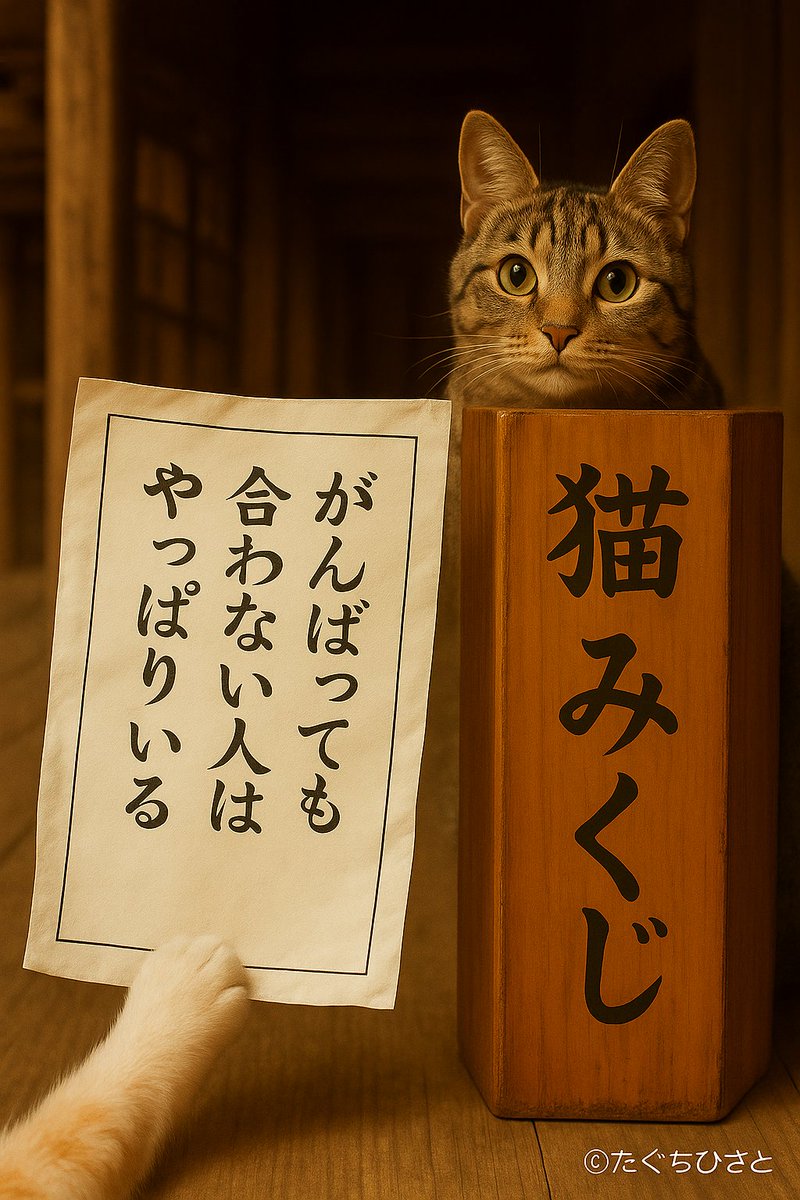 がんばっても
合わない人は
やっぱりいる
猫みくじ
©たぐちひさと